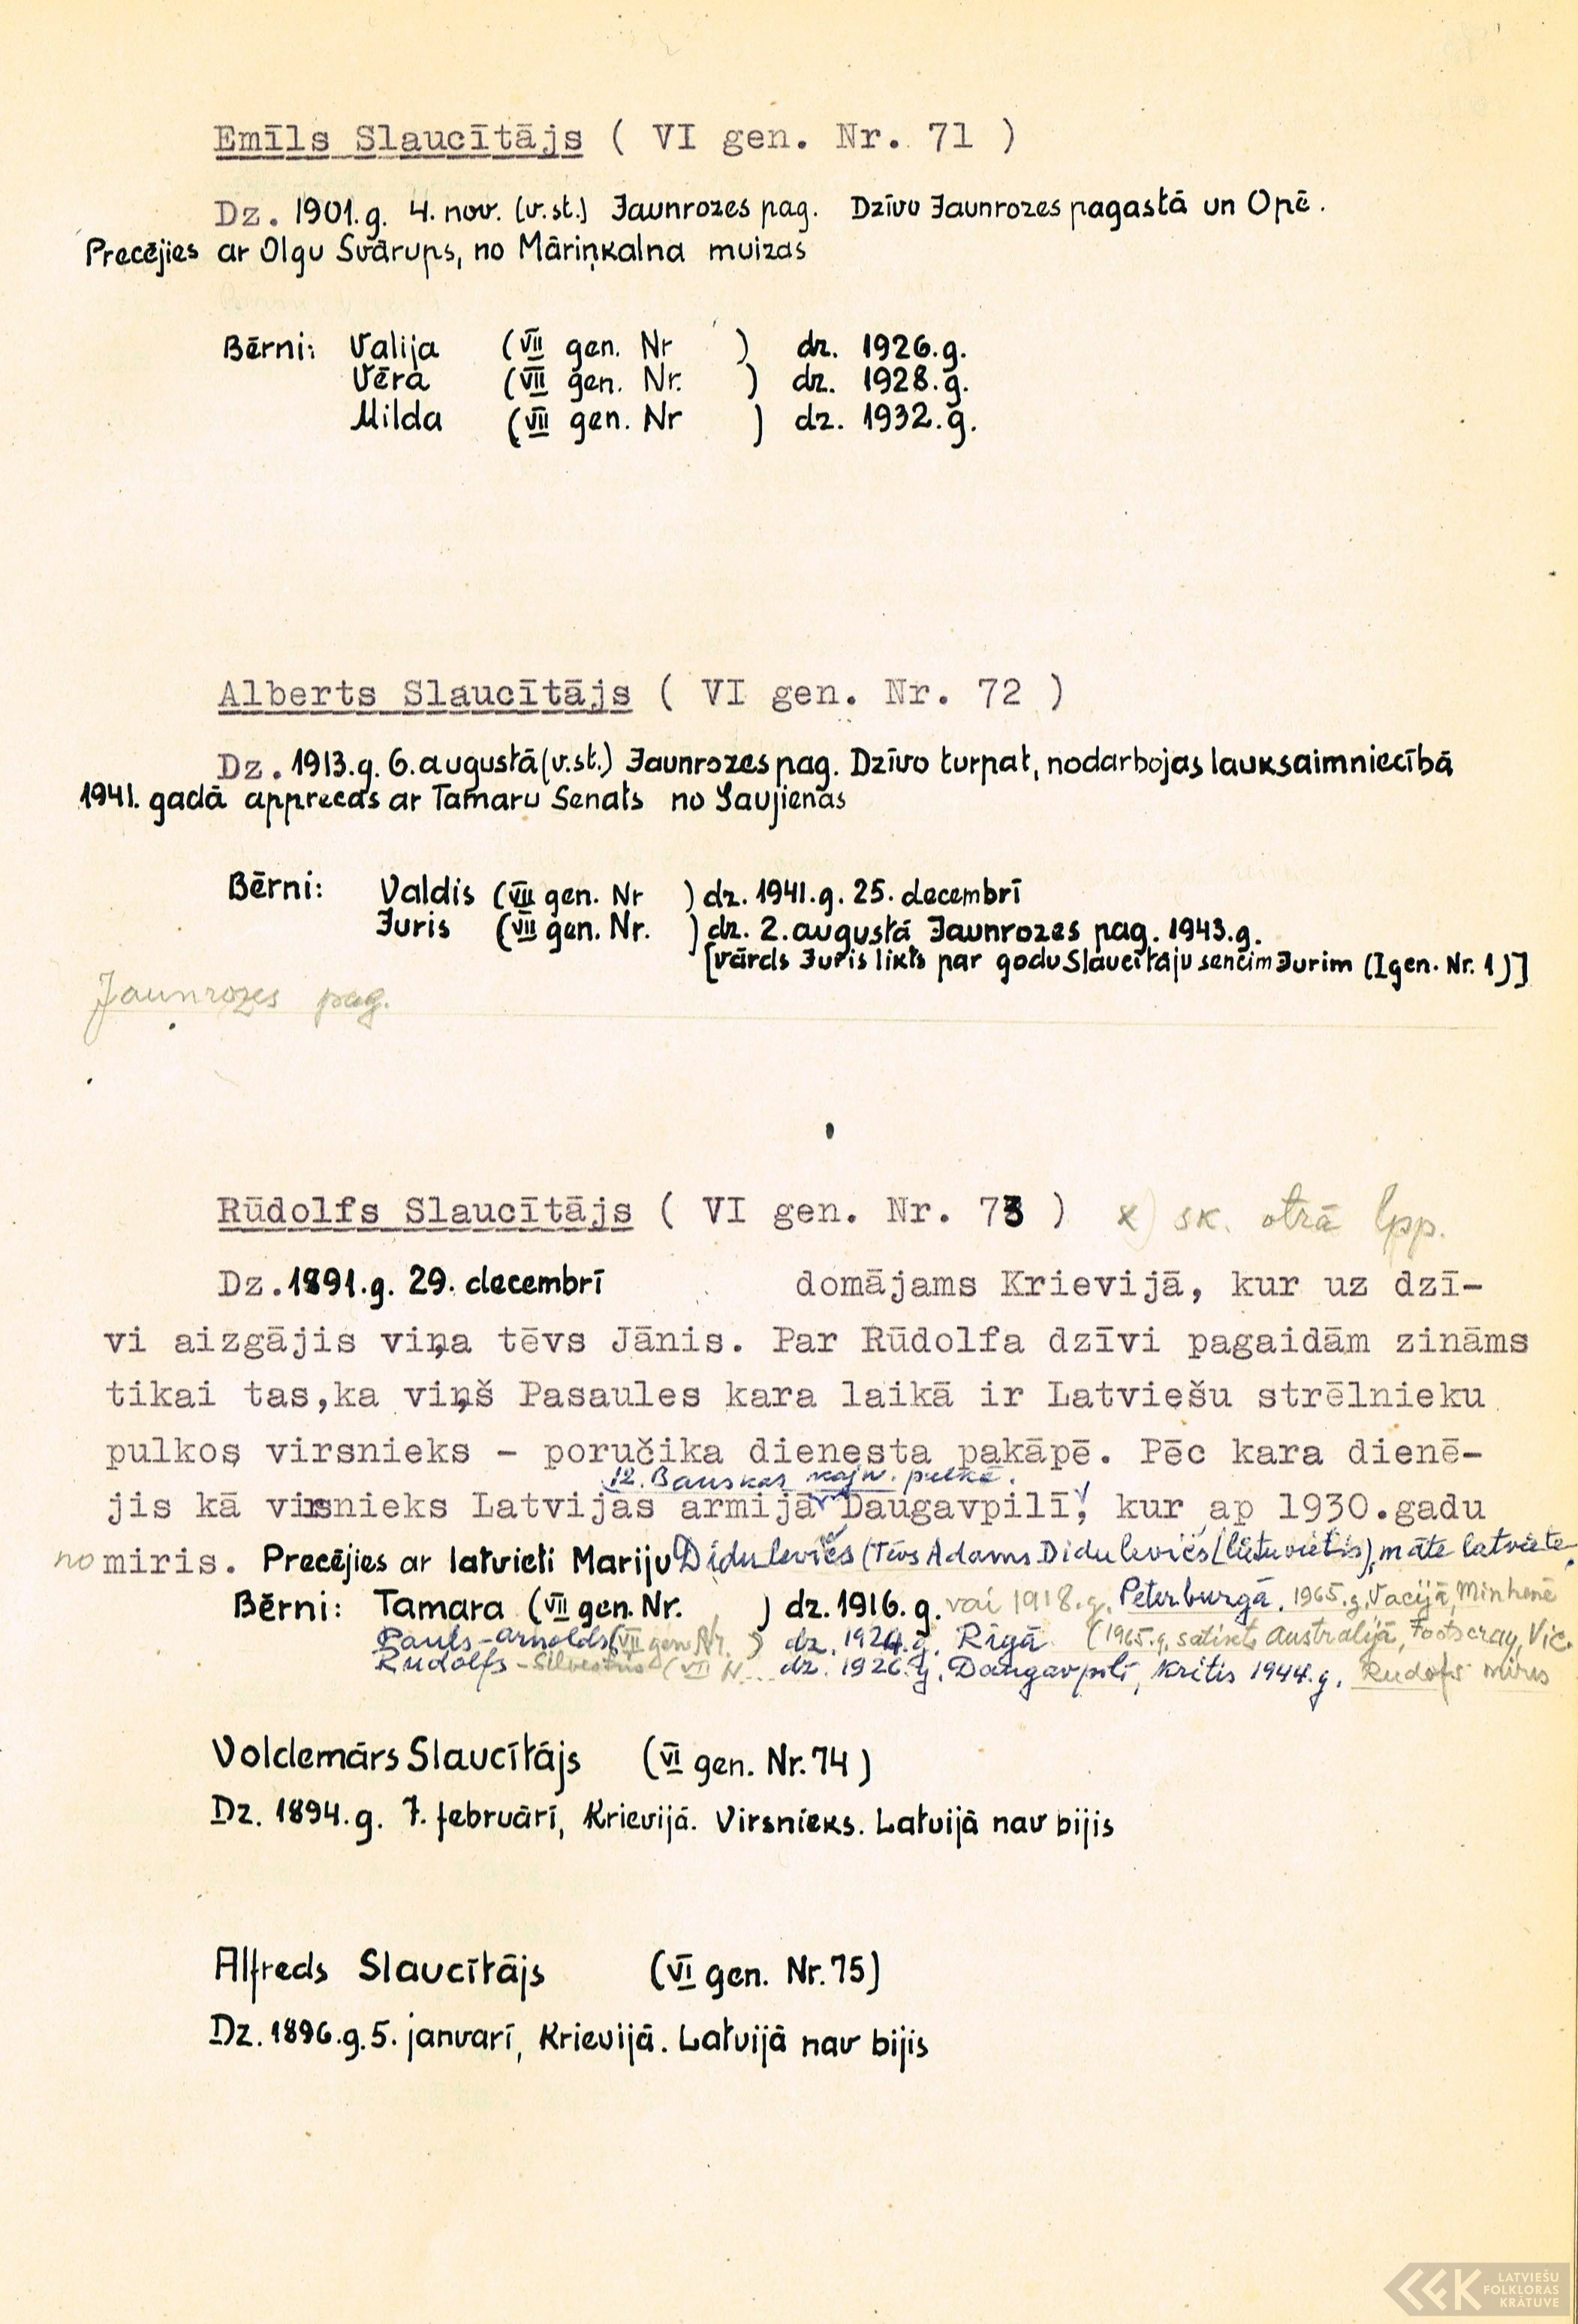 Emīls Slaucītājs ( VI gen. Nr. 71 )
Dz. 1901.g. 4. nov. (v.st.) Jaunrozes pag. Dzīvo Jaunrozes pagastā un Opē.
Precējies ar Olgu Svārups, no Māriņkalna muizas
Bērni: Valija (VII gen. Nr ) dz. 1926.g.
Vēra (VII gen. Nr. ) dz. 1928.g.
Milda (VII gen. Nr ) dz. 1932.g.
Alberts Slaucītājs ( VI gen. Nr. 72 )
Dz. 1913.g. 6.augustā (v.st.) Jaunrozes pag. Dzīvo turpat, nodarbojas lauksaimniecībā
1941. gadā apprecas ar Tamaru Senats no Ļaujienas
Bērni: Valdis (VII gen. Nr ) dz. 1941.g. 25. decembrī
Juris (VII gen. Nr. ) dz. 2.augustā Jaunrozes pag. 1943.g.
[vārds Juris likts par godu Slaucītāju sencim Jurim (I gen. Nr. 1)]
Jaunrozes pag.
Rūdolfs Slaucītājs ( VI gen. Nr. 73 ) x) sk. otrā lpp.
Dz. 1891.g. 29. decembrī domājams Krievijā, kur uz dzī-
vi aizgājis viņa tēvs Jānis. Par Rūdolfa dzīvi pagaidām zināms
tikai tas,ka viņš Pasaules kara laikā ir Latviešu strēlnieku
pulkos virsnieks - poručika dienesta pakāpē. Pēc kara dienē-
12. Bauskas kājn. pulkā.
jis kā virsnieks Latvijas armijā Daugavpilī, kur ap 1930.gadu
no miris. Precējies ar latvieti Mariju Didulevičs (Tēvs Adams Didulevičs (lietuvietis), māte latviete.
Bērni: Tamara (VII gen. Nr. ) dz. 1916.g. vai 1918.g. Pēterburgā. 1965.g. Vacijā, Minhenē
Pauls-Arnolds (VII gen. Nr. ) dz. 1924.g. Rīgā (1965.g. satikts Australijā, Footscray, Vic.
Rudolfs-Silvestrs (VII N... dz. 1926.g. Daugavpilī, Kritis 1944.g. Rudolfs miris
Voldemārs Slaucītājs (VI gen. Nr. 74)
Dz. 1894.g. 7. februārī, Krievijā. Virsnieks. Latvijā nav bijis
Alfreds Slaucītājs (VI gen. Nr. 75)
Dz. 1896.g. 5. janvarī, Krievijā. Latvijā nav bijis
LATVIEŠU
FOLKLORAS
KRĀTUVE